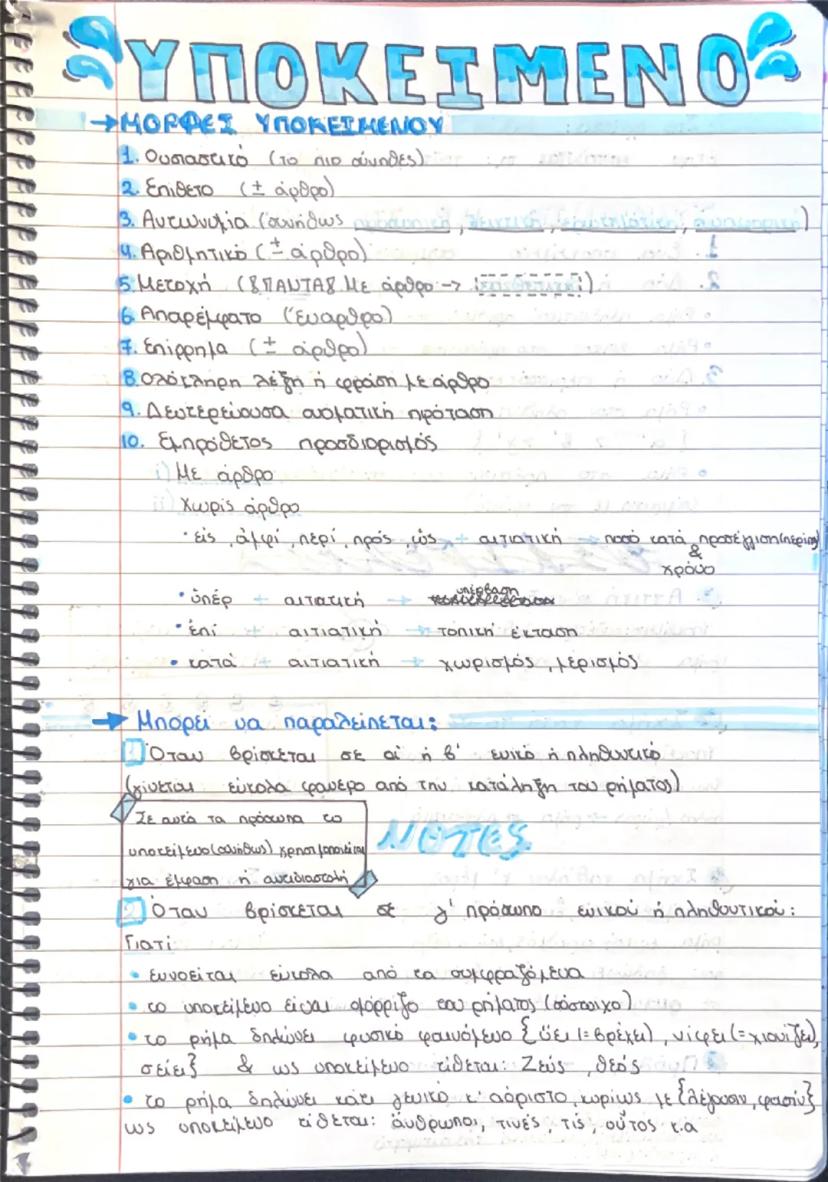 ΥΠΟΚΕΙΜΕΝΟ
→ΜΟΡΦΕΣ ΥΠΟΚΕΙΜΕΝΟΥ
1. Ουσιαστικό (το πιο σύνηθες)
2. Επίθετο (± άρθρο)
3. Αντωνυμία (συνήθως , , , )
4. Αριθμητικό (± άρθρο)
5. Μετοχή (ΠΑΝΤΑ Με άρθρο -> )
6. Απαρέμφατο (Έναρθρο)
7. Επίρρημα (± άρθρο)
8. Ολόκληρη λέξη ή φράση με άρθρο
9. Δευτερεύουσα ονοματική πρόταση
10. Εμπρόθετος προσδιορισμός
i) Με άρθρο
ii) Χωρίς άρθρο
· εἰς, ἀμφί, περί, πρός, ὡς + αιτιατική → ποσό κατά προσέγγιση (περίπου)
&
χρόνο
• ὑπέρ + αιτιατική → υπέρβαση
• ἐπί + αιτιατική → τοπική έκταση
• κατά + αιτιατική → χωρισμός, μερισμός
→ Μπορεί να παραλείπεται:
1 Όταν βρίσκεται σε α' ή β' ενικό ή πληθυντικό
(γίνεται εύκολα φανερό από την κατάληξη του ρήματος)
Σε αυτά τα πρόσωπα το
υποκείμενο (συνήθως) χρησιμοποιείται
για έμφαση ή αντιδιαστολή
NOTES
2 Όταν βρίσκεται σε γ' πρόσωπο ενικού ή πληθυντικού:
Γιατί
• εννοείται εύκολα από τα συμφραζόμενα
• το υποκείμενο είναι ομόρριζο του ρήματος (σύστοιχο)
• το ρήμα δηλώνει φυσικό φαινόμενο {ὕει (=βρέχει), νίφει (=χιονίζει),
σείει} & ως υποκείμενο τίθεται: Ζεύς, θεός
• το ρήμα δηλώνει κάτι γενικό κ' αόριστο, κυρίως με {λέγουσιν, φασίν}
ως υποκείμενο τίθεται: ἄνθρωποι, τινές, τίς, οὗτος κ.α